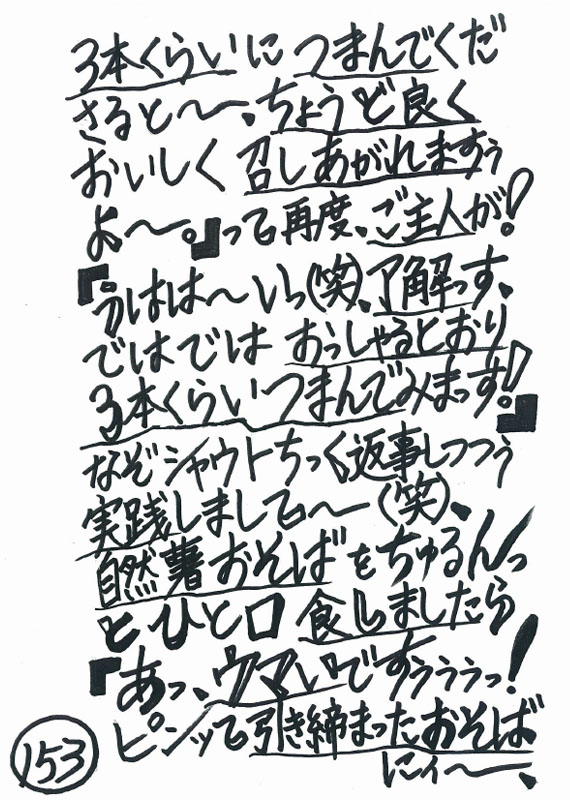 3本くらいにつまんでくだ
さると〜、ちょうど良く
おいしく召しあがれますぅ
よ〜。』って再度、ご主人が!
『うはは〜いっ(笑)、了解っす、
ではではおっしゃるとおり
3本くらいつまんでみまっす!』
なぞシャウトちっく返事しつつぅ
実践しまして〜(笑)、
自然薯おそばをちゅるんっ
とひと口食しましたら
『あっ、ウマいですぅぅぅっ!
ピンッて引き締まったおそば
にィ〜、
153